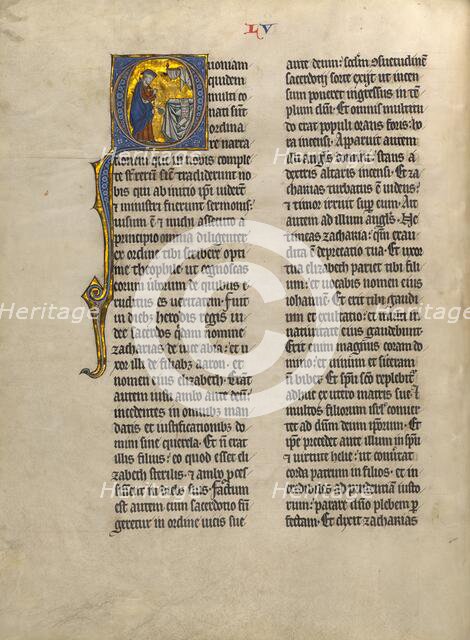 LV
uoniam
quidem
multi co
nati sunt
ordina
re narra
tionem que in nobis comple
te st rerū sicut tradiderunt no
bis qui ab initio ipi viderūt
et ministri fuerunt sermonis:
uisum ē et michi assecuto a
principio omnia diligenter
ex ordine tibi scribere opti
me theophile ut cognoscas
eorum uborum de quibus e
ruditus es ueritatem. Fuit
in dieb; herodis regis iu
dee sacerdos quidam nomine
zacharias de uice abia: et u
xor illi de filiab; aaron. et
nomen eius elizabeth. Erāt
autem iusti ambo ante deū:
incedentes in omnibus man
datis et iustificationibus do
mini sine querela. Et nō erat
illis filius: eo quod esset eli
zabeth sterilis. et ambo pces
sissent in diebus suis. Factum
est autem cum sacerdotio fū
geretur in ordine uicis sue
ante deum: scdm ōsuetudinē
sacerdotij sorte exijt ut incen
sum poneret ingressus in tē
plum dnī. Et omnis multitu
do erat populi orans foris ho
ra incensi. Apparuit autem
illi angls domini stans a
dextris altaris incensi. Et za
charias turbatus ē uidens:
et timor irruit sup eum. Ait
autem ad illum angls. Ne
timeas zacharia: qm exau
dita ē deprecatio tua. Et uxor
tua elizabeth pariet tibi fili
um: et uocabis nomen eius
iohannem. Et erit tibi gaudi
um et exultatio: et multi
in natiuitate eius gaudebunt.
Erit enim magnus coram do
mino: et uinum et siceram
nō bibet. Et spū scō replebit
adhuc ex utero matris sue. Et
multos filiorum isrl conuer
tet ad dnm deum ipsorum. Et
ipe precedet ante illum in spū
et uirtute helie: ut conuertat
corda patrum in filios. et in
credibiles ad prudentiam iusto
rum: parare dño plebem p
fectam. Et dixit zacharias
Heritage
Heritage
Heritage
Heritage
Heritage
Heritage